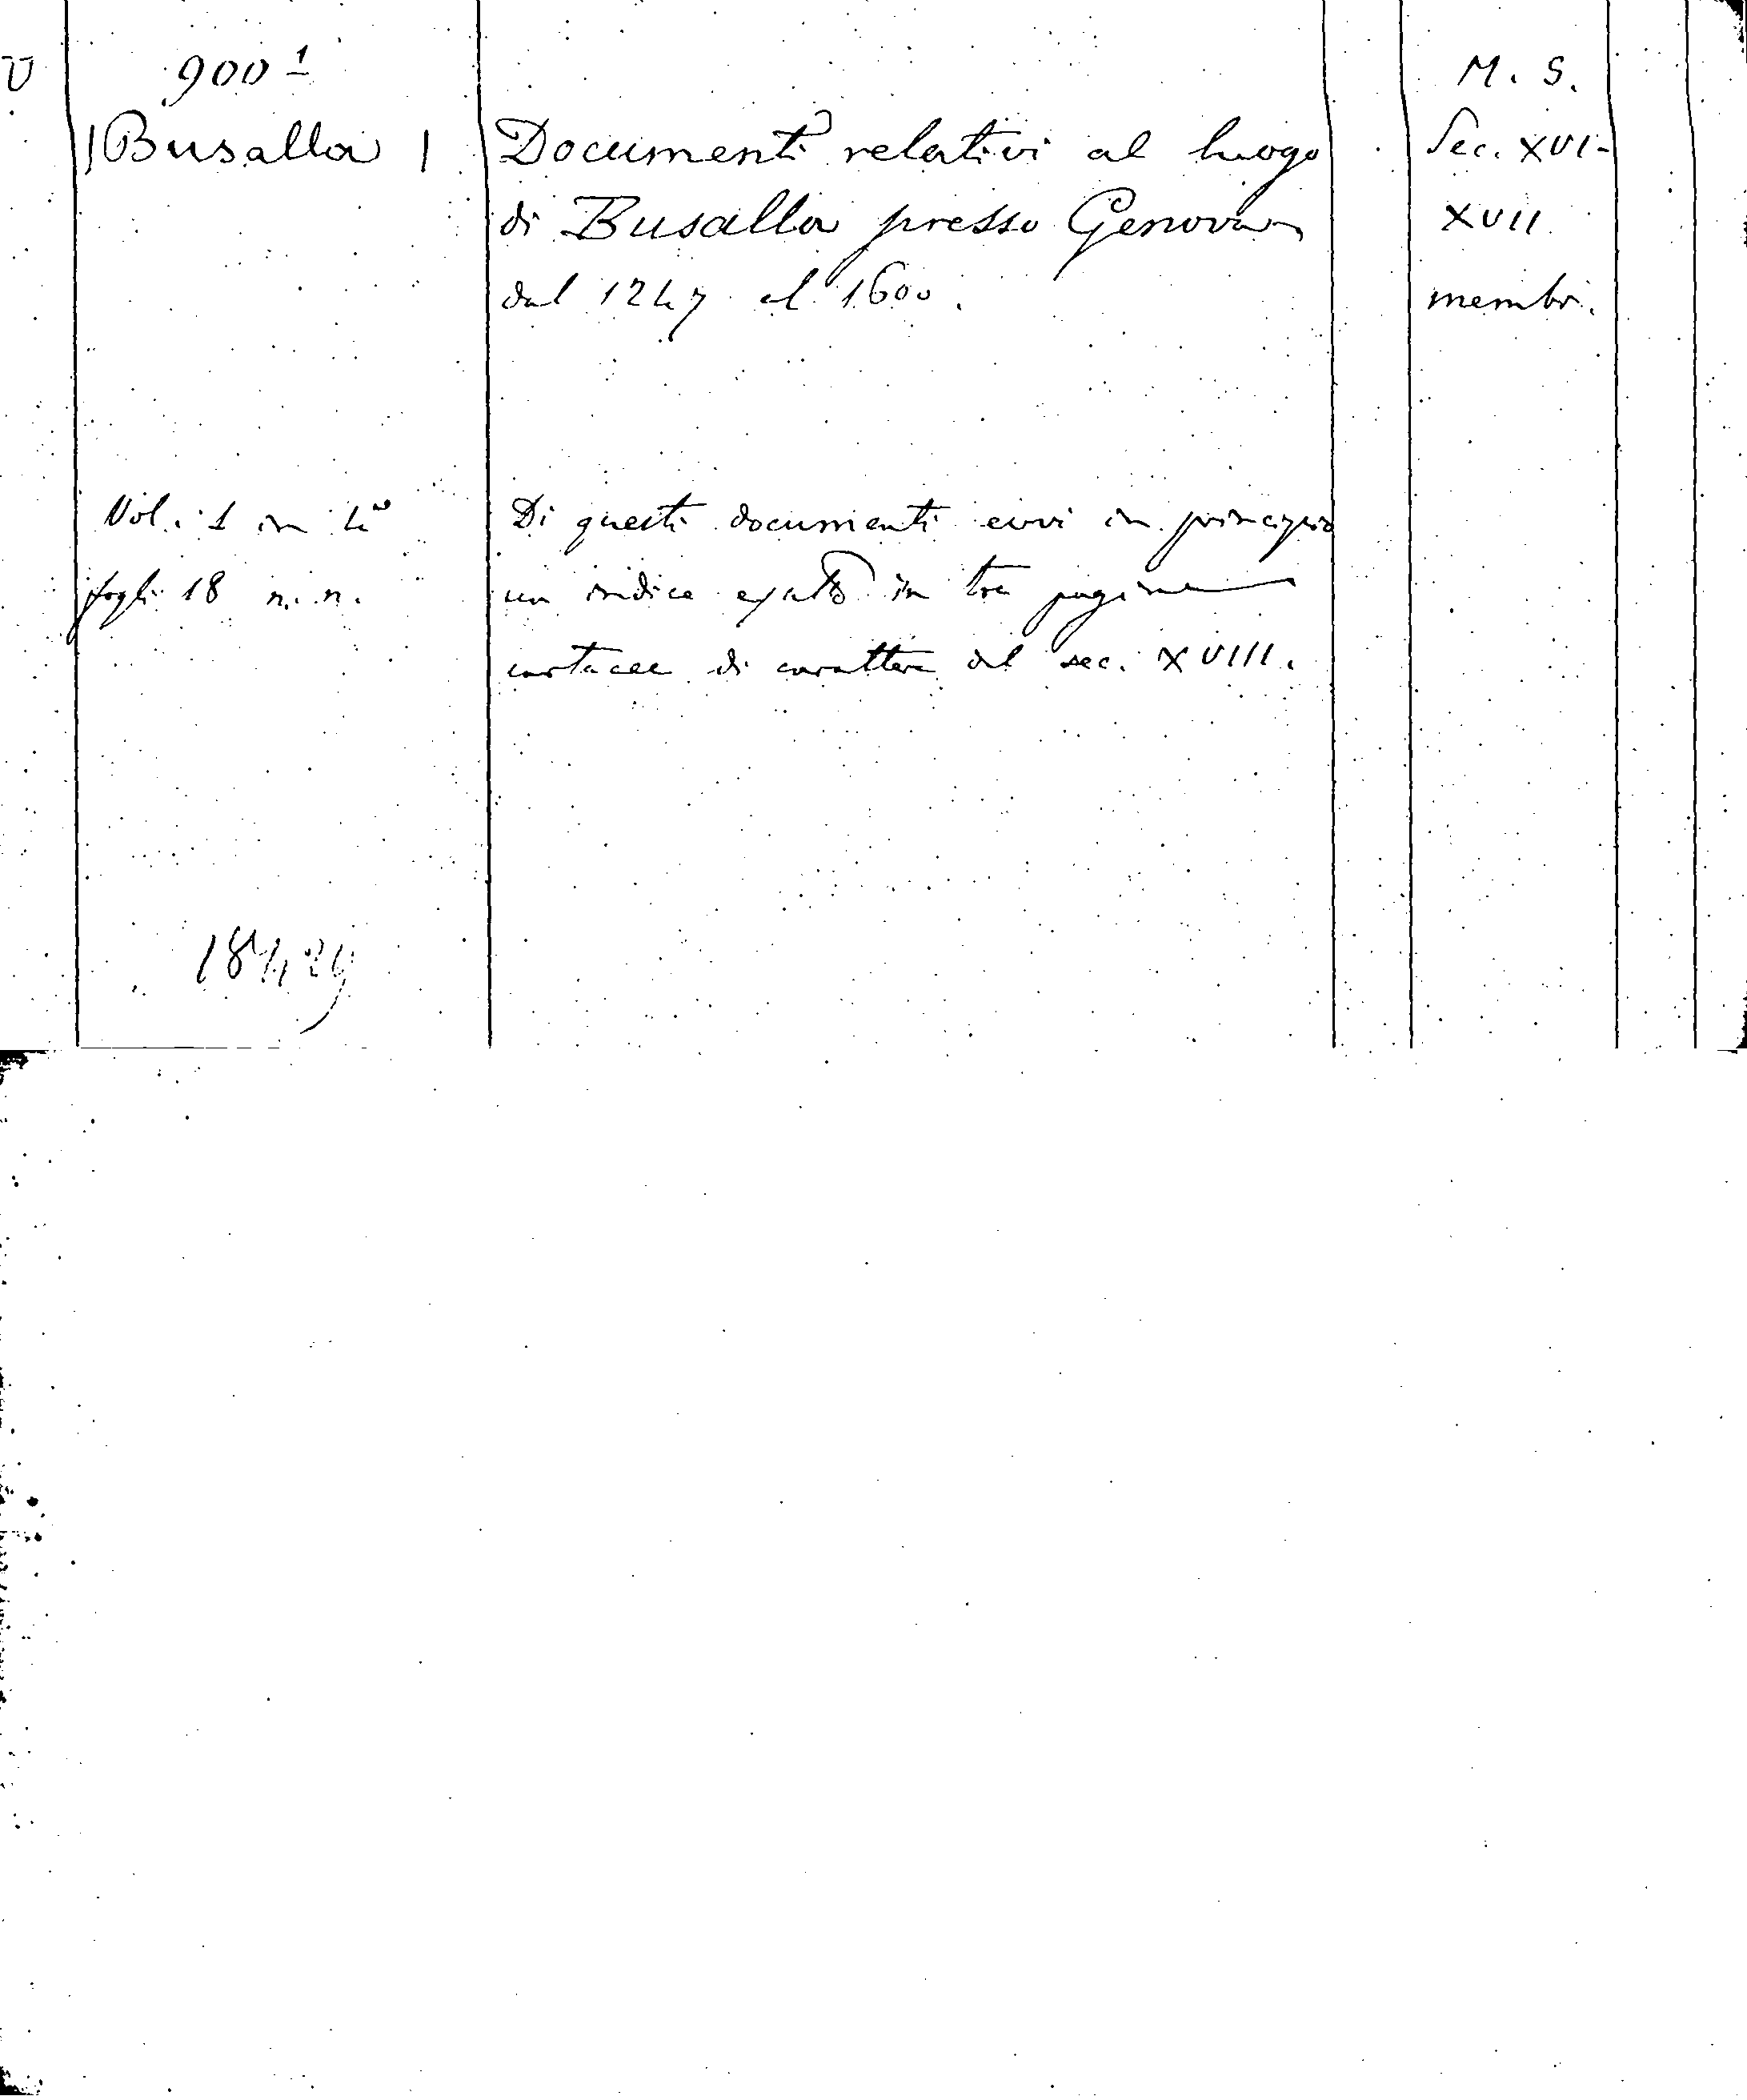 V
900 1
|Busalla|
Documenti relativi al luogo
di Busalla presso Genova
dal 1247 al 1600.
M. S.
Sec. XVI-
XVII
membr.
Vol. 1 in 4º
fogli 18 n. n.
Di questi documenti evvi in principio
un indice esatto in tre pagine
cartacee di carattere del sec. XVIII.